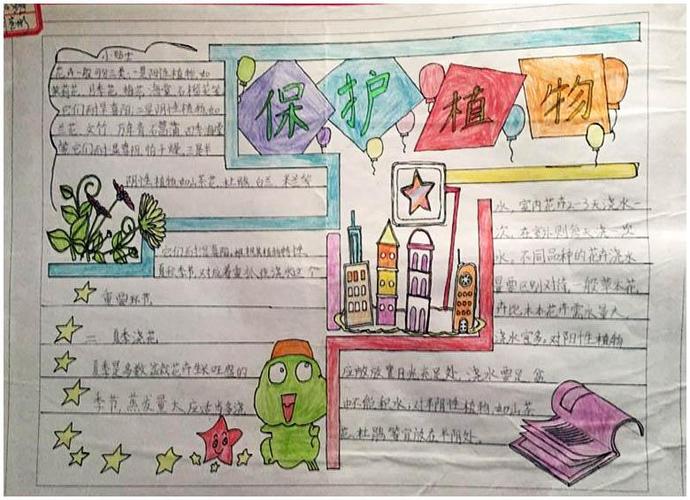 保护植物
小贴士
花卉一般可分三类:一是阳性植物,如
茉莉花、月季花、梅花、海棠、石榴花等
它们耐旱喜阳;二是阴性植物,如
兰花、文竹、万年青、石菖蒲、
等它们不耐旱喜阴,怕干燥,三是半
阴性植物,如山茶花、杜鹃、白兰、米兰等
它们不耐旱喜阳,根据其植物特性,
夏秋季节,对应着重抓住浇水这个
重要环节
二、夏季浇花
夏季是多数盆栽花卉生长旺盛的
季节,蒸发量大,应适当多浇
水。室内花卉2-3天浇水一
次,在室外则每天浇一次
水。不同品种的花卉浇水
量要区别对待,一般草本花
卉比木本花卉需水量大,
浇水宜多。对阳性植物
应放于日光充足处,浇水要足,盆
中不能积水;对半阴性植物,如山茶
花、杜鹃等宜放在半阴处。